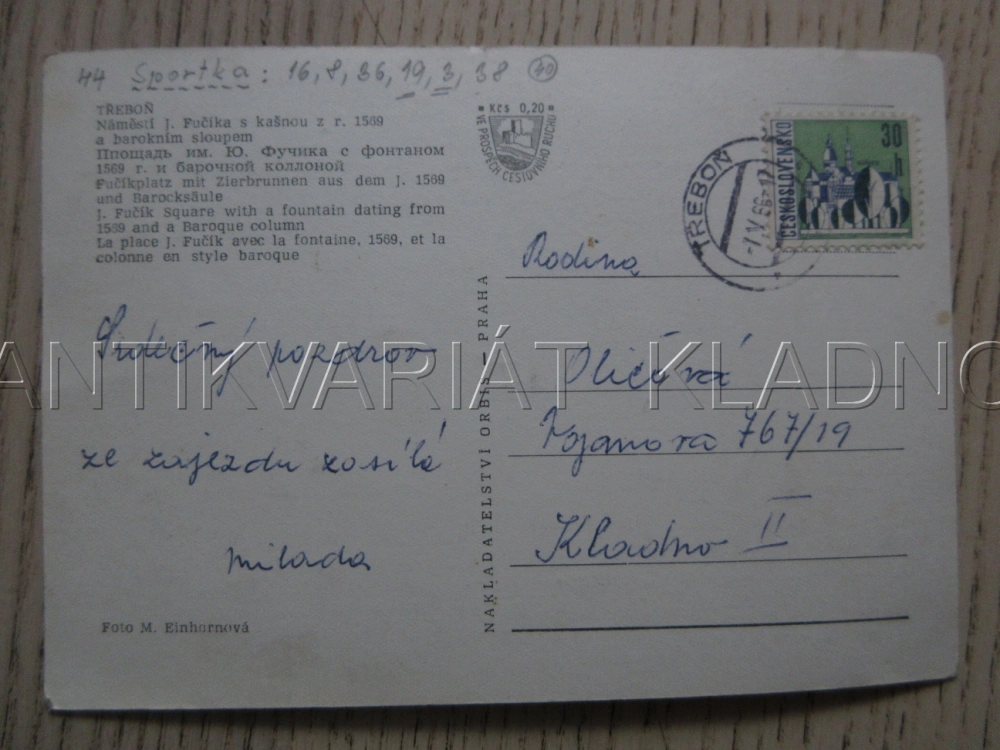 44 Sportka: 16, 8, 36, 19, 3, 38 40
TŘEBOŇ
Náměstí J. Fučíka s kašnou z r. 1569
a barokním sloupem
Площадь им. Ю. Фучика с фонтаном
1569 г. и барочной коллоной
Fučíkplatz mit Zierbrunnen aus dem J. 1569
und Barocksäule
J. Fučík Square with a fountain dating from
1569 and a Baroque column
La place J. Fučík avec la fontaine, 1569, et la
colonne en style baroque
Kčs 0,20
VE PROSPĚCH CESTOVNÍHO RUCHU
TŘEBOŇ
ČESKOSLOVENSKO
30 h
Srdečný pozdrav
ze zájezdu zasílá
Milada
Foto M. Einhornová
NAKLADATELSTVÍ ORBIS — PRAHA
Rodina
Vojanova 767/19
Kladno II
ANTIKVARIÁT KLADNO